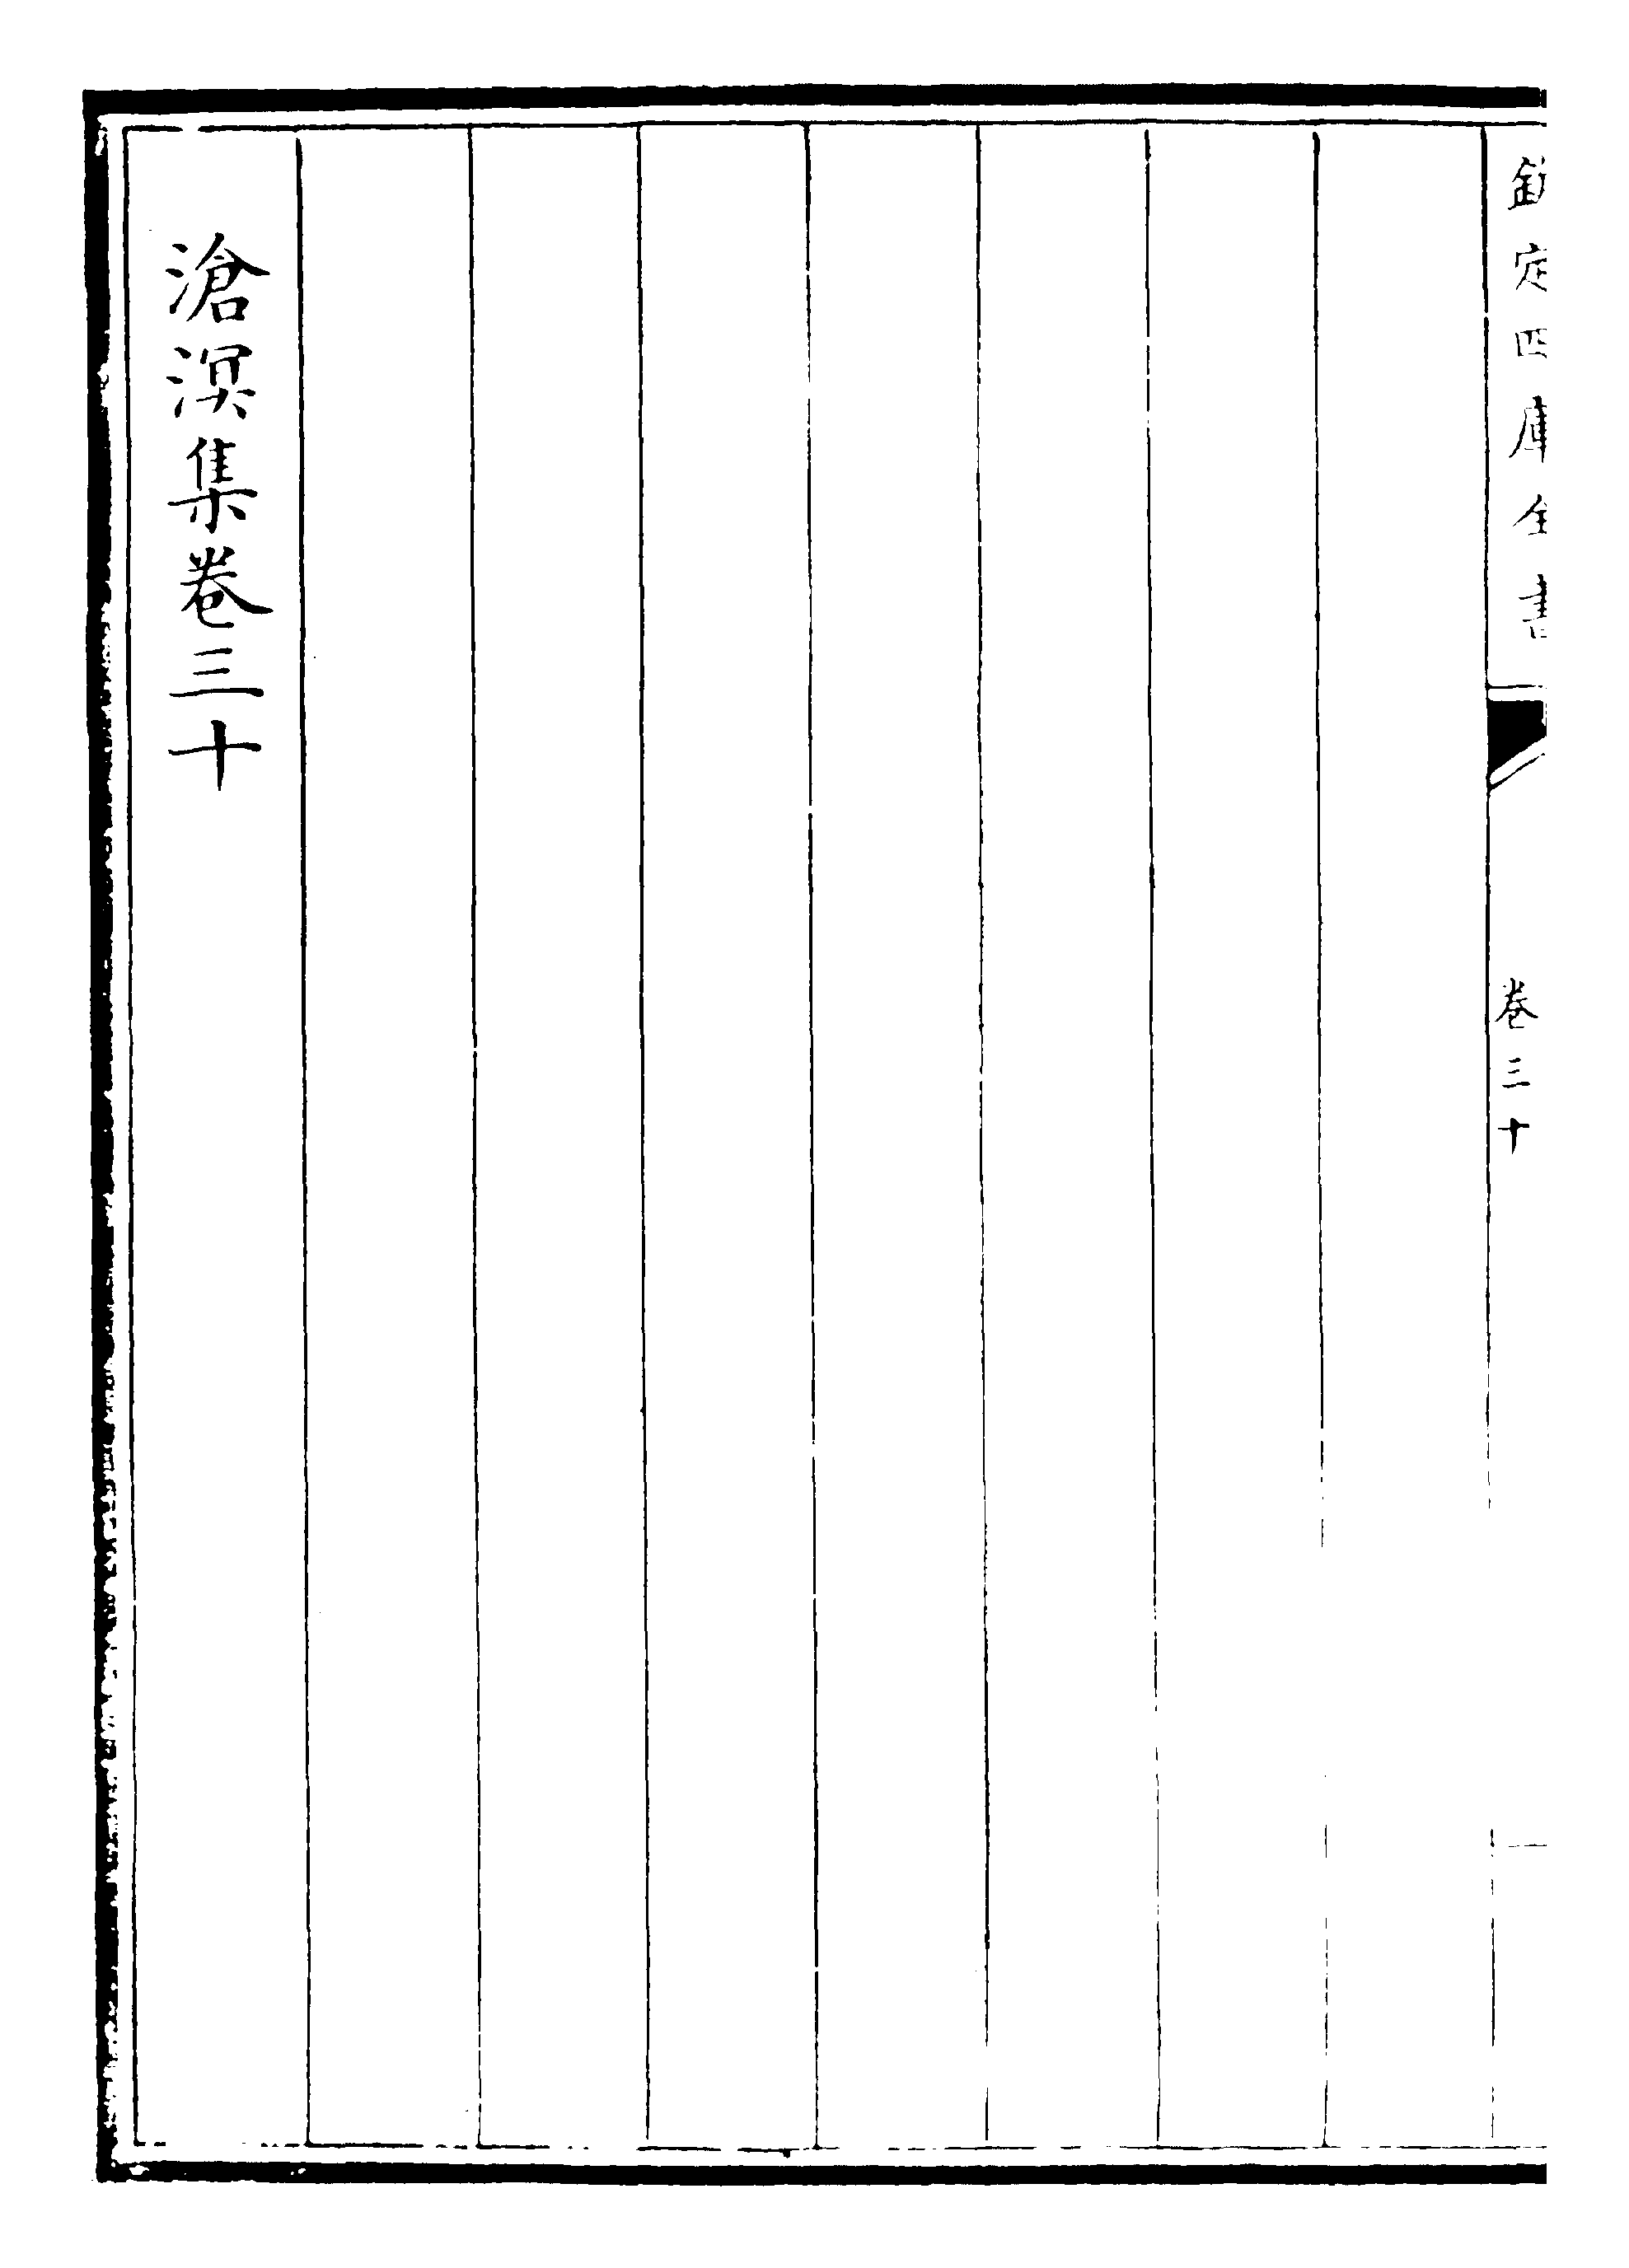 欽定四庫全書
卷三十
滄溟集卷三十